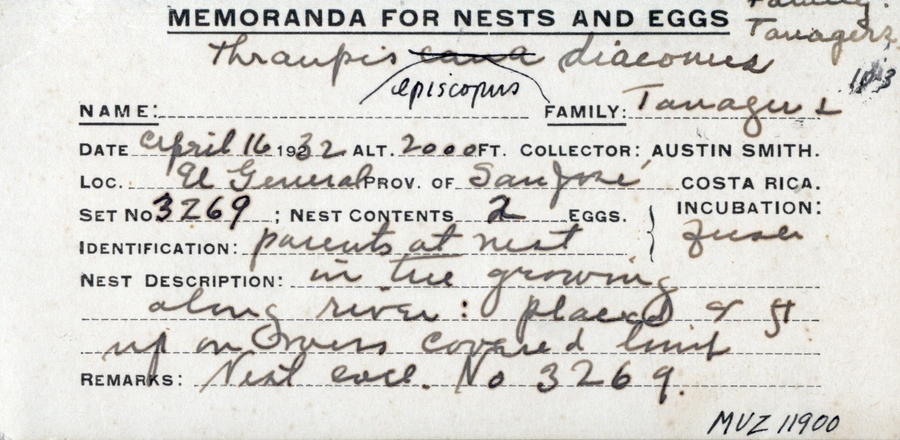 Family:
MEMORANDA FOR NESTS AND EGGS
Tanagers
Thraupis cana diaconus
episcopus
NAME: FAMILY: Tanagers
DATE April 16 1932 ALT. 2000 FT. COLLECTOR: AUSTIN SMITH.
LOC. El General PROV. OF San José COSTA RICA.
SET No 3269 ; NEST CONTENTS 2 EGGS. INCUBATION:
IDENTIFICATION: parents at nest fresh
NEST DESCRIPTION: in tree growing
along river: placed ft
up on moss covered limb
REMARKS: Nest coll. No 3269.
MVZ 11900